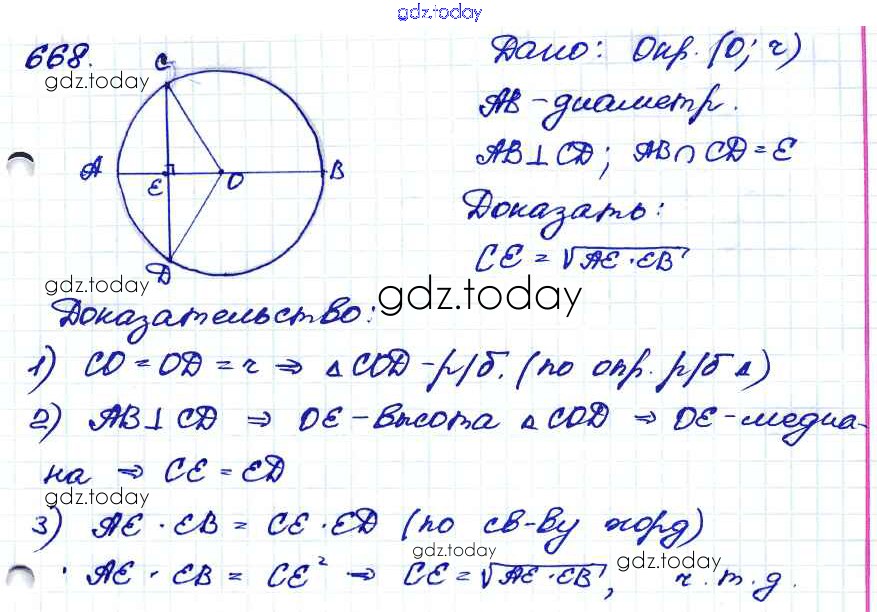 gdz.today
668.
gdz.today
C
A
E
O
B
D
Дано: Окр. (O; r)
AB - диаметр.
AB ⊥ CD; AB ∩ CD = E
Доказать:
CE = √AE · EB
gdz.today
gdz.today
Доказательство:
1) CO = OD = r ⇒ △ COD - р/б. (по опр. р/б △)
2) AB ⊥ CD ⇒ OE - высота △ COD ⇒ OE - медиа-
на ⇒ CE = ED
gdz.today
3) AE · EB = CE · ED (по св-ву хорд)
gdz.today
gdz.today
AE · EB = CE² ⇒ CE = √AE · EB, ч.т.д.